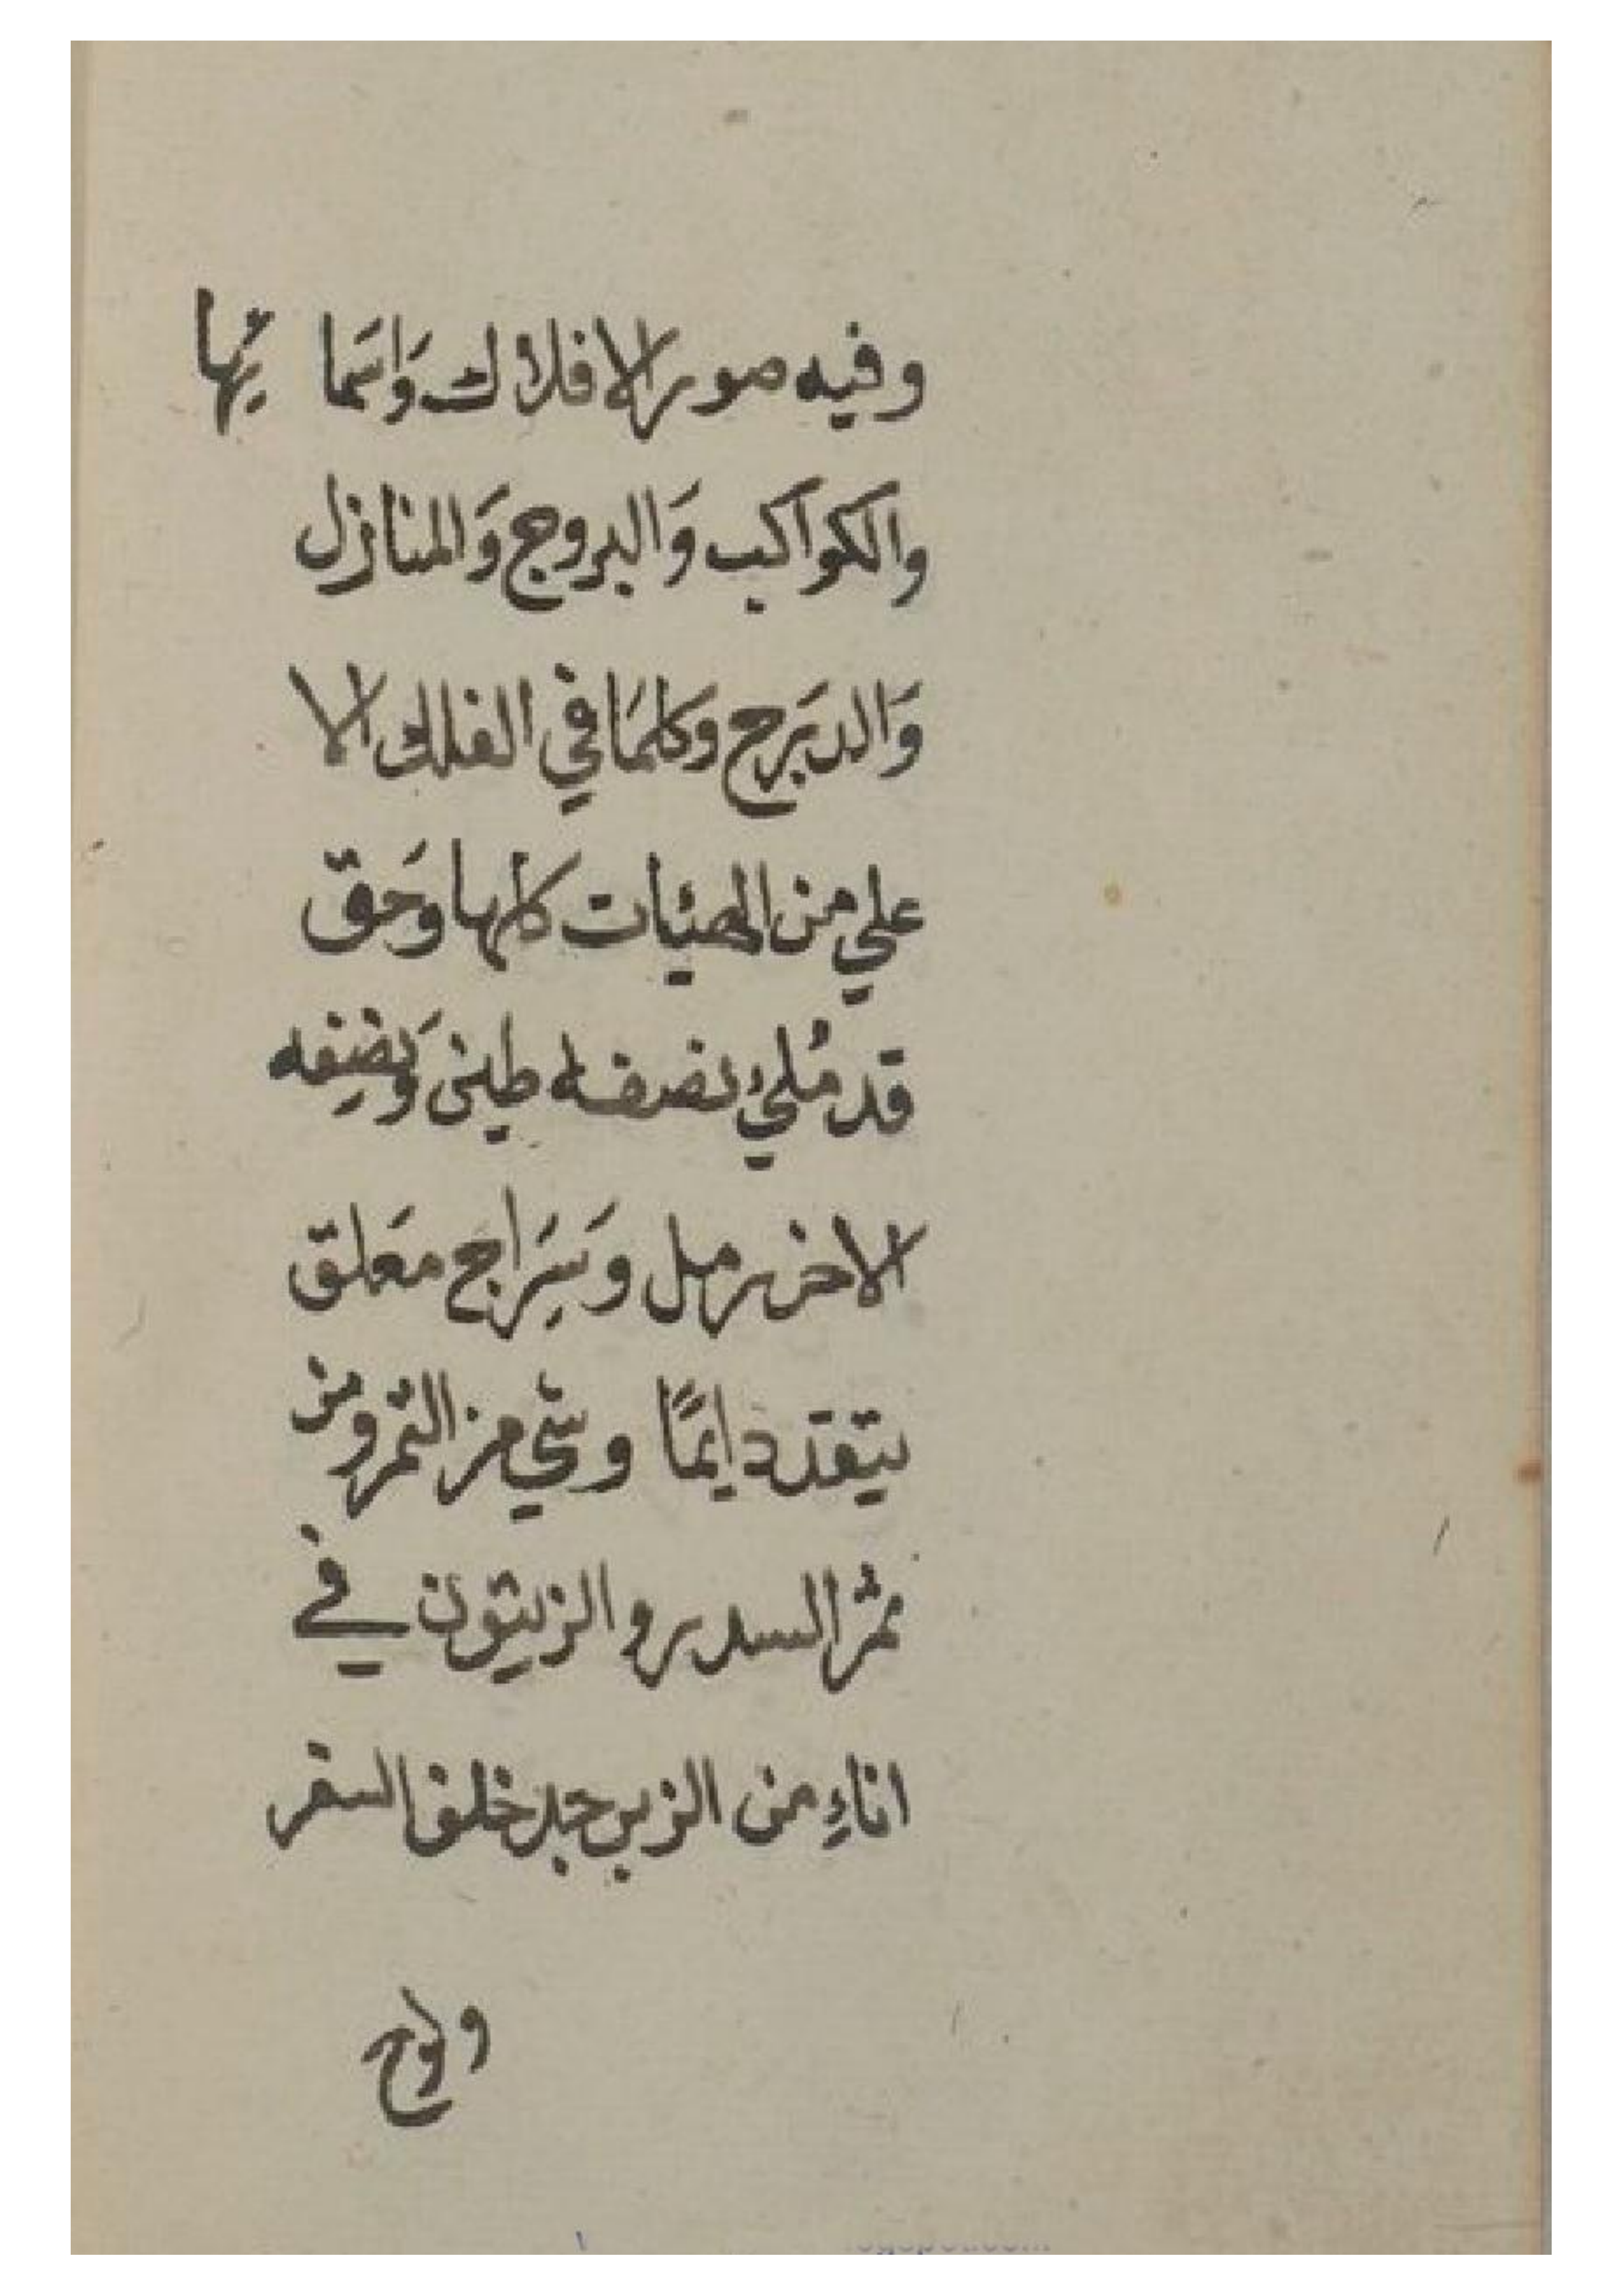 وفيه صور الافلاك وَاسَما يِها
والكواكب وَالبروج وَالمنازل
وَالدبَرج وكلمَا في الفلك الا
علي من الهيئات كلها وحَق
قد مُلئ نصفه طين وَنصِفه
الاخر رمل وَسِرَاج مَعلق
يتقد دايمًا وشي من التمر ومن
ثمر السدر والزيتون في
اناءِ من الزبرجد خلف الستر
ولوح